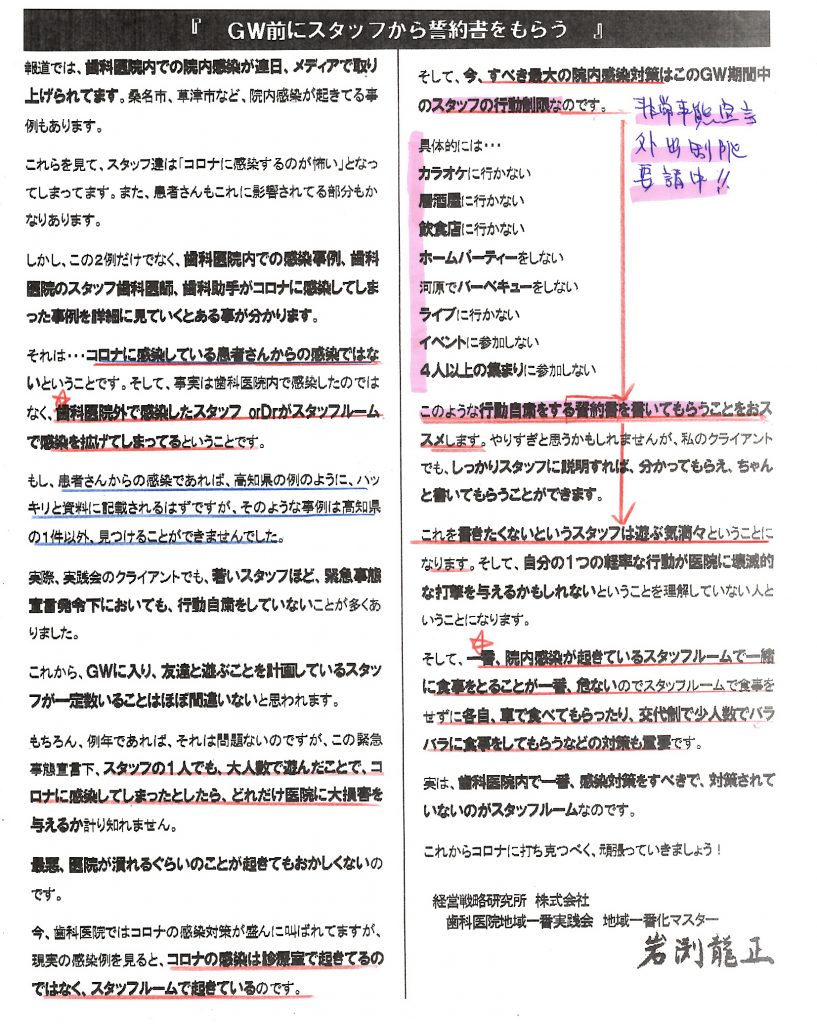 『　GW前にスタッフから誓約書をもらう　』
報道では、歯科医院内での院内感染が連日、メディアで取り
上げられてます。桑名市、草津市など、院内感染が起きてる事
例もあります。
これらを見て、スタッフ達は「コロナに感染するのが怖い」となっ
てしまってます。また、患者さんもこれに影響されてる部分もか
なりあります。
しかし、この２例だけでなく、歯科医院内での感染事例、歯科
医院のスタッフ歯科医師、歯科助手がコロナに感染してしま
った事例を詳細に見ていくとある事が分かります。
それは・・・コロナに感染している患者さんからの感染ではな
いということです。そして、事実は歯科医院内で感染したのでは
なく、歯科医院外で感染したスタッフ orDrがスタッフルーム
で感染を拡げてしまってるということです。
もし、患者さんからの感染であれば、高知県の例のように、ハッ
キリと資料に記載されるはずですが、そのような事例は高知県
の１件以外、見つけることができませんでした。
実際、実践会のクライアントでも、若いスタッフほど、緊急事態
宣言発令下においても、行動自粛をしていないことが多くあ
りました。
これから、GWに入り、友達と遊ぶことを計画しているスタッ
フが一定数いることはほぼ間違いないと思われます。
もちろん、例年であれば、それは問題ないのですが、この緊急
事態宣言下、スタッフの１人でも、大人数で遊んだことで、コ
ロナに感染してしまったとしたら、どれだけ医院に大損害を
与えるか計り知れません。
最悪、医院が潰れるぐらいのことが起きてもおかしくないの
です。
今、歯科医院ではコロナの感染対策が盛んに叫ばれてますが、
現実の感染例を見ると、コロナの感染は診療室で起きてるの
ではなく、スタッフルームで起きているのです。
そして、今、すべき最大の院内感染対策はこのGW期間中
のスタッフの行動制限なのです。
非常事態宣言
外出制限
要請中!!
具体的には・・・
カラオケに行かない
居酒屋に行かない
飲食店に行かない
ホームパーティーをしない
河原でバーベキューをしない
ライブに行かない
イベントに参加しない
４人以上の集まりに参加しない
このような行動自粛をする誓約書を書いてもらうことをおス
スメします。やりすぎと思うかもしれませんが、私のクライアント
でも、しっかりスタッフに説明すれば、分かってもらえ、ちゃん
と書いてもらうことができます。
これを書きたくないというスタッフは遊ぶ気満々ということに
なります。そして、自分の１つの軽率な行動が医院に壊滅的
な打撃を与えるかもしれないということを理解していない人と
いうことになります。
そして、一番、院内感染が起きているスタッフルームで一緒
に食事をとることが一番、危ないのでスタッフルームで食事を
せずに各自、車で食べてもらったり、交代制で少人数でバラ
バラに食事をしてもらうなどの対策も重要です。
実は、歯科医院内で一番、感染対策をすべきで、対策されて
いないのがスタッフルームなのです。
これからコロナに打ち克つべく、頑張っていきましょう！
経営戦略研究所　株式会社
歯科医院地域一番実践会　地域一番化マスター
岩渕龍正